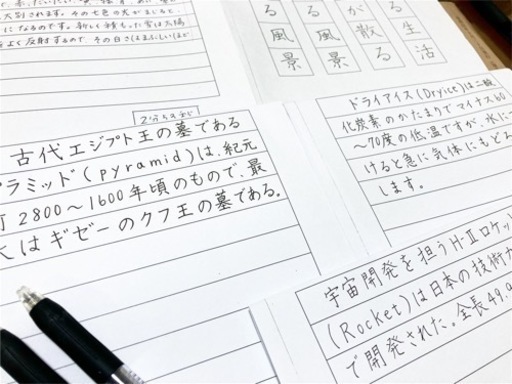 大別されます。その七色の光がまじると、
になるのです。新しく積もった雪は太陽
をよく反射するので、その白さはまぶしいほど
る風景
る風景
が散る
る生活
2分55秒
古代エジプト王の墓である
ラミッド(pyramid)は、紀元
前2800〜1600年頃のもので、最
大はギゼーのクフ王の墓である。
ドライアイス(Dryice)は二酸
化炭素のかたまりでマイナス60
〜70度の低温ですが、水に
けると急に気体にもどろ
します。
宇宙開発を担うH-Ⅱロケット
(Rocket)は日本の技術力
で開発された。全長49.9